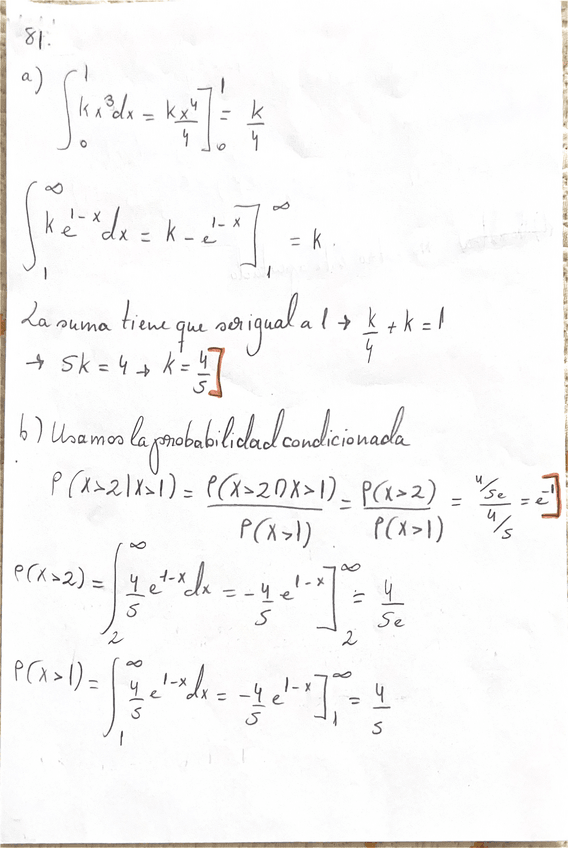 81.
a) ∫₀¹ kx³dx = kx⁴/4]₀¹ = k/4
∫₁^∞ k e^(1-x) dx = k - e^(1-x)]₁^∞ = k.
La suma tiene que ser igual a 1 → k/4 + k = 1
→ 5k = 4 → k = 4/5]
b) Usamos la probabilidad condicionada
P(X>2|X>1) = P(X>2∩X>1)/P(X>1) = P(X>2)/P(X>1) = (4/5e)/(4/5) = e^(-1)]
P(X>2) = ∫₂^∞ 4/5 e^(1-x) dx = -4/5 e^(1-x)]₂^∞ = 4/5e
P(X>1) = ∫₁^∞ 4/5 e^(1-x) dx = -4/5 e^(1-x)]₁^∞ = 4/5